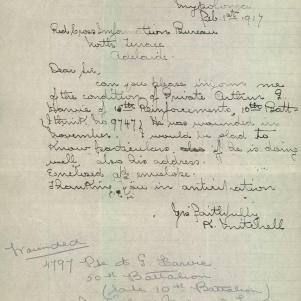 Feb. 1st 1917
Red Cross Information Bureau
North Terrace
Adelaide
Dear Sir,
can you please inform me
of the condition of Private Arthur E
Harvie of 15th Reinforcements, 10th Batt.
(I think no 9747) He was wounded in
November. I would be glad to
know particulars also if he is doing
well also his address.
Enclosed envelope.
Thanking you in anticipation
Yrs Faithfully
R. Mitchell
Wounded
4797 Pte A E Harvie
50th Battalion
(late 10th Battalion)